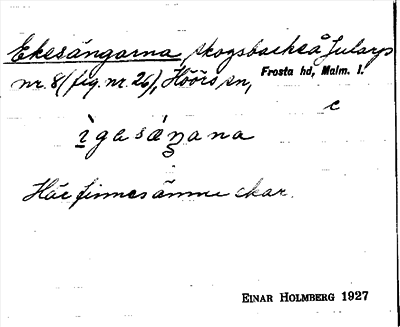 Ekesängarna, skogsbacke å Jularp
nr. 8 (fig. nr. 26), Höörs sn, Frosta hd, Malm. l.
c
ìgasáŋana
Här finnes ännu ekar.
EINAR HOLMBERG 1927